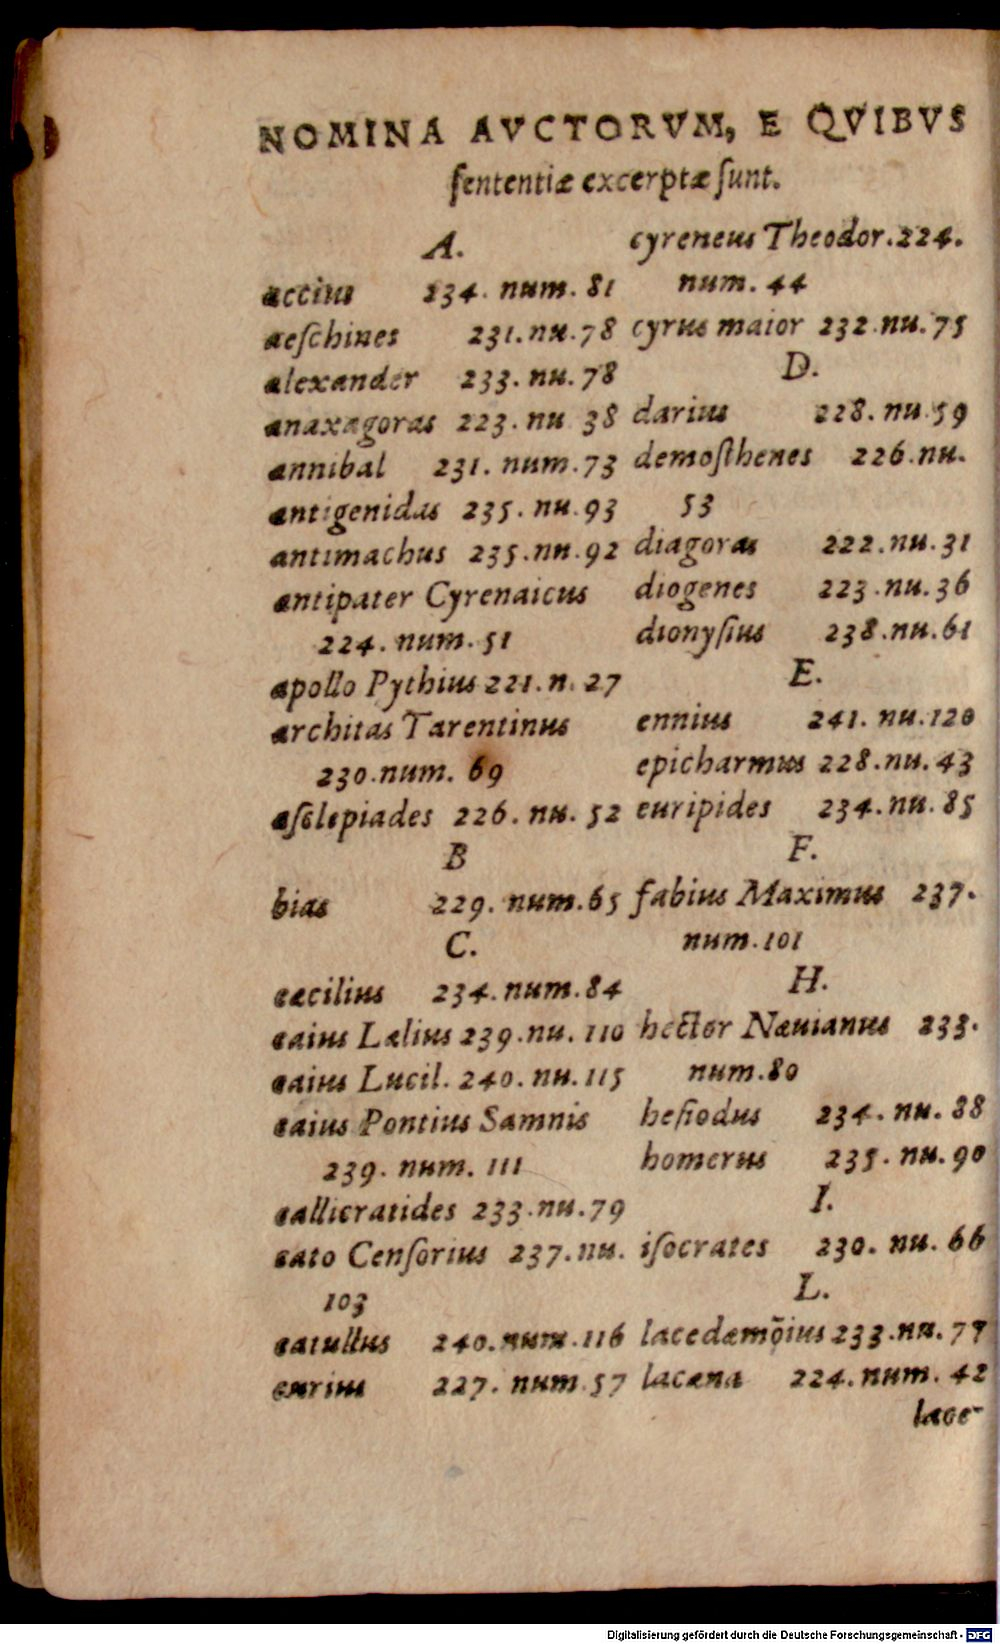 NOMINA AVCTORVM, E QVIBVS
ſententiæ excerptæ ſunt.
A.
accius 234. num. 81
aeſchines 231. nu. 78
alexander 233. nu. 78
anaxagoras 223. nu 38
annibal 231. num. 73
antigenidas 235. nu. 93
antimachus 235. nu. 92
antipater Cyrenaicus
224. num. 51
apollo Pythius 221. n. 27
architas Tarentinus
230. num. 69
aſclepiades 226. nu. 52
B
bias 229. num. 65
C.
cæcilius 234. num. 84
caius Lælius 239. nu. 110
caius Lucil. 240. nu. 115
caius Pontius Samnis
239. num. 111
callicratides 233. nu. 79
cato Cenſorius 237. nu.
103
catullus 240. num. 116
curius 227. num. 57
cyreneus Theodor. 224.
num. 44
cyrus maior 232. nu. 75
D.
darius 228. nu. 59
demoſthenes 226. nu.
53
diagoras 222. nu. 31
diogenes 223. nu. 36
dionyſius 238. nu. 61
E.
ennius 241. nu. 120
epicharmus 228. nu. 43
euripides 234. nu. 85
F.
fabius Maximus 237.
num. 101
H.
hector Næuianus 233.
num. 80
heſiodus 234. nu. 88
homerus 235. nu. 90
I.
iſocrates 230. nu. 66
L.
lacedæmõius 233. nu. 77
lacæna 224. num. 42
lace-
Digitalisierung gefördert durch die Deutsche Forschungsgemeinschaft - DFG